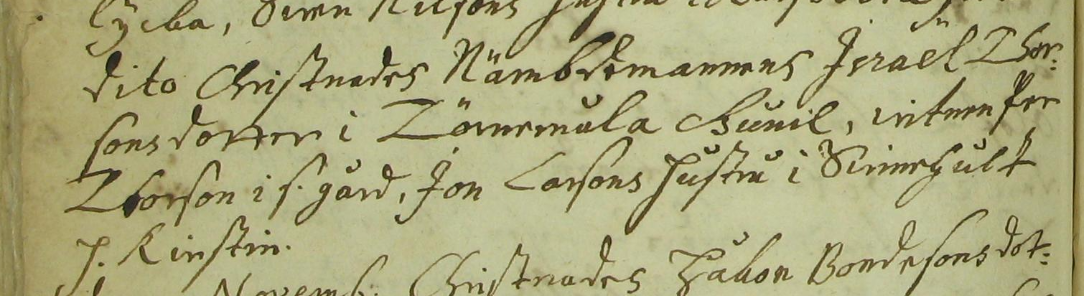 lycka, Swen Nilsons hustru
dito Christnades Nämbdemannens Israël Thor-
sons dotter i Törnemåla Gunil, witnen Per
Thorson i s. gård, Jon Larsons hustru i Svinehult
h. Kirstin.
Novemb. Christnades Håkon Bondesons dot-